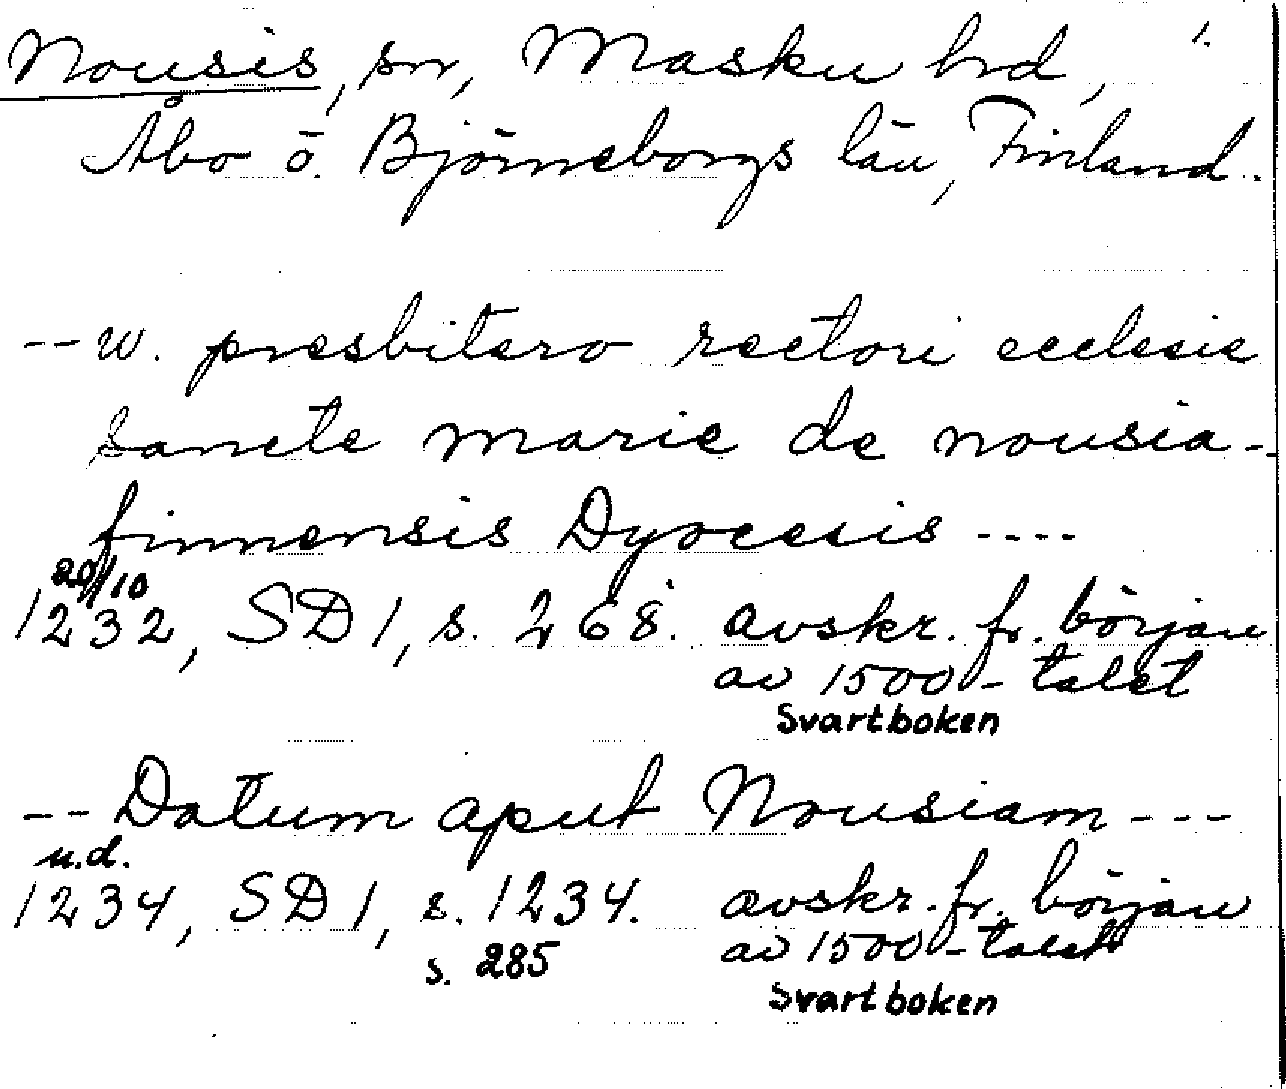 Nousis, sn, Masku hrd, 1.
Åbo o. Björneborgs län, Finland.
-- w. presbitero rectori ecclesie
sancte marie de nousia-
finnensis Dyocesis ----
20/10
1232, SD 1, s. 268. avskr. fr. början
av 1500-talet
Svartboken
-- Datum aput Nousiam ---
u.d.
1234, SD 1, s. 1234. avskr. fr. början
s. 285 av 1500-talet
Svartboken